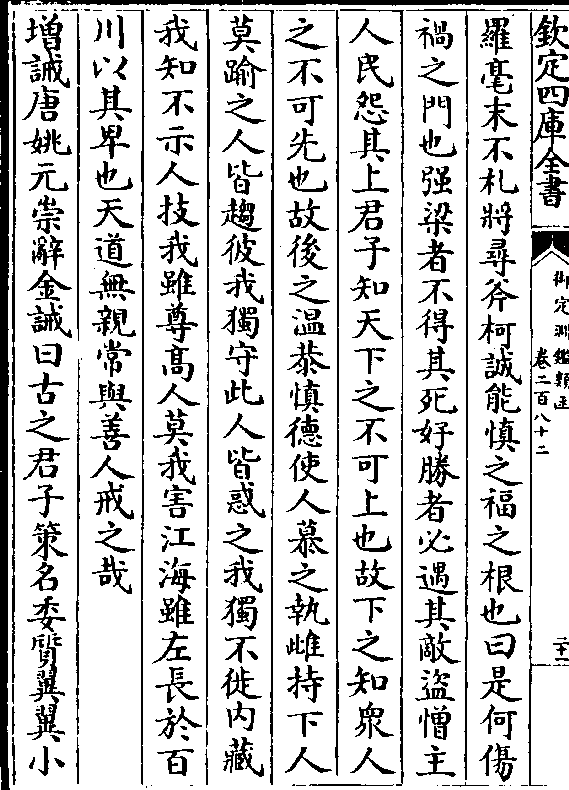 欽定四庫全書
御定淵鑑類函
卷二百八十二
二十一
羅毫末不札將尋斧柯誠能慎之福之根也曰是何傷
禍之門也强梁者不得其死好勝者必遇其敵盜憎主
人民怨其上君子知天下之不可上也故下之知衆人
之不可先也故後之温恭慎德使人慕之執雌持下人
莫踰之人皆趨彼我獨守此人皆惑之我獨不徙内藏
我知不示人技我雖尊髙人莫我害江海雖左長於百
川以其卑也天道無親常與善人戒之哉
増誡唐姚元崇辭金誡曰古之君子策名委質翼翼小